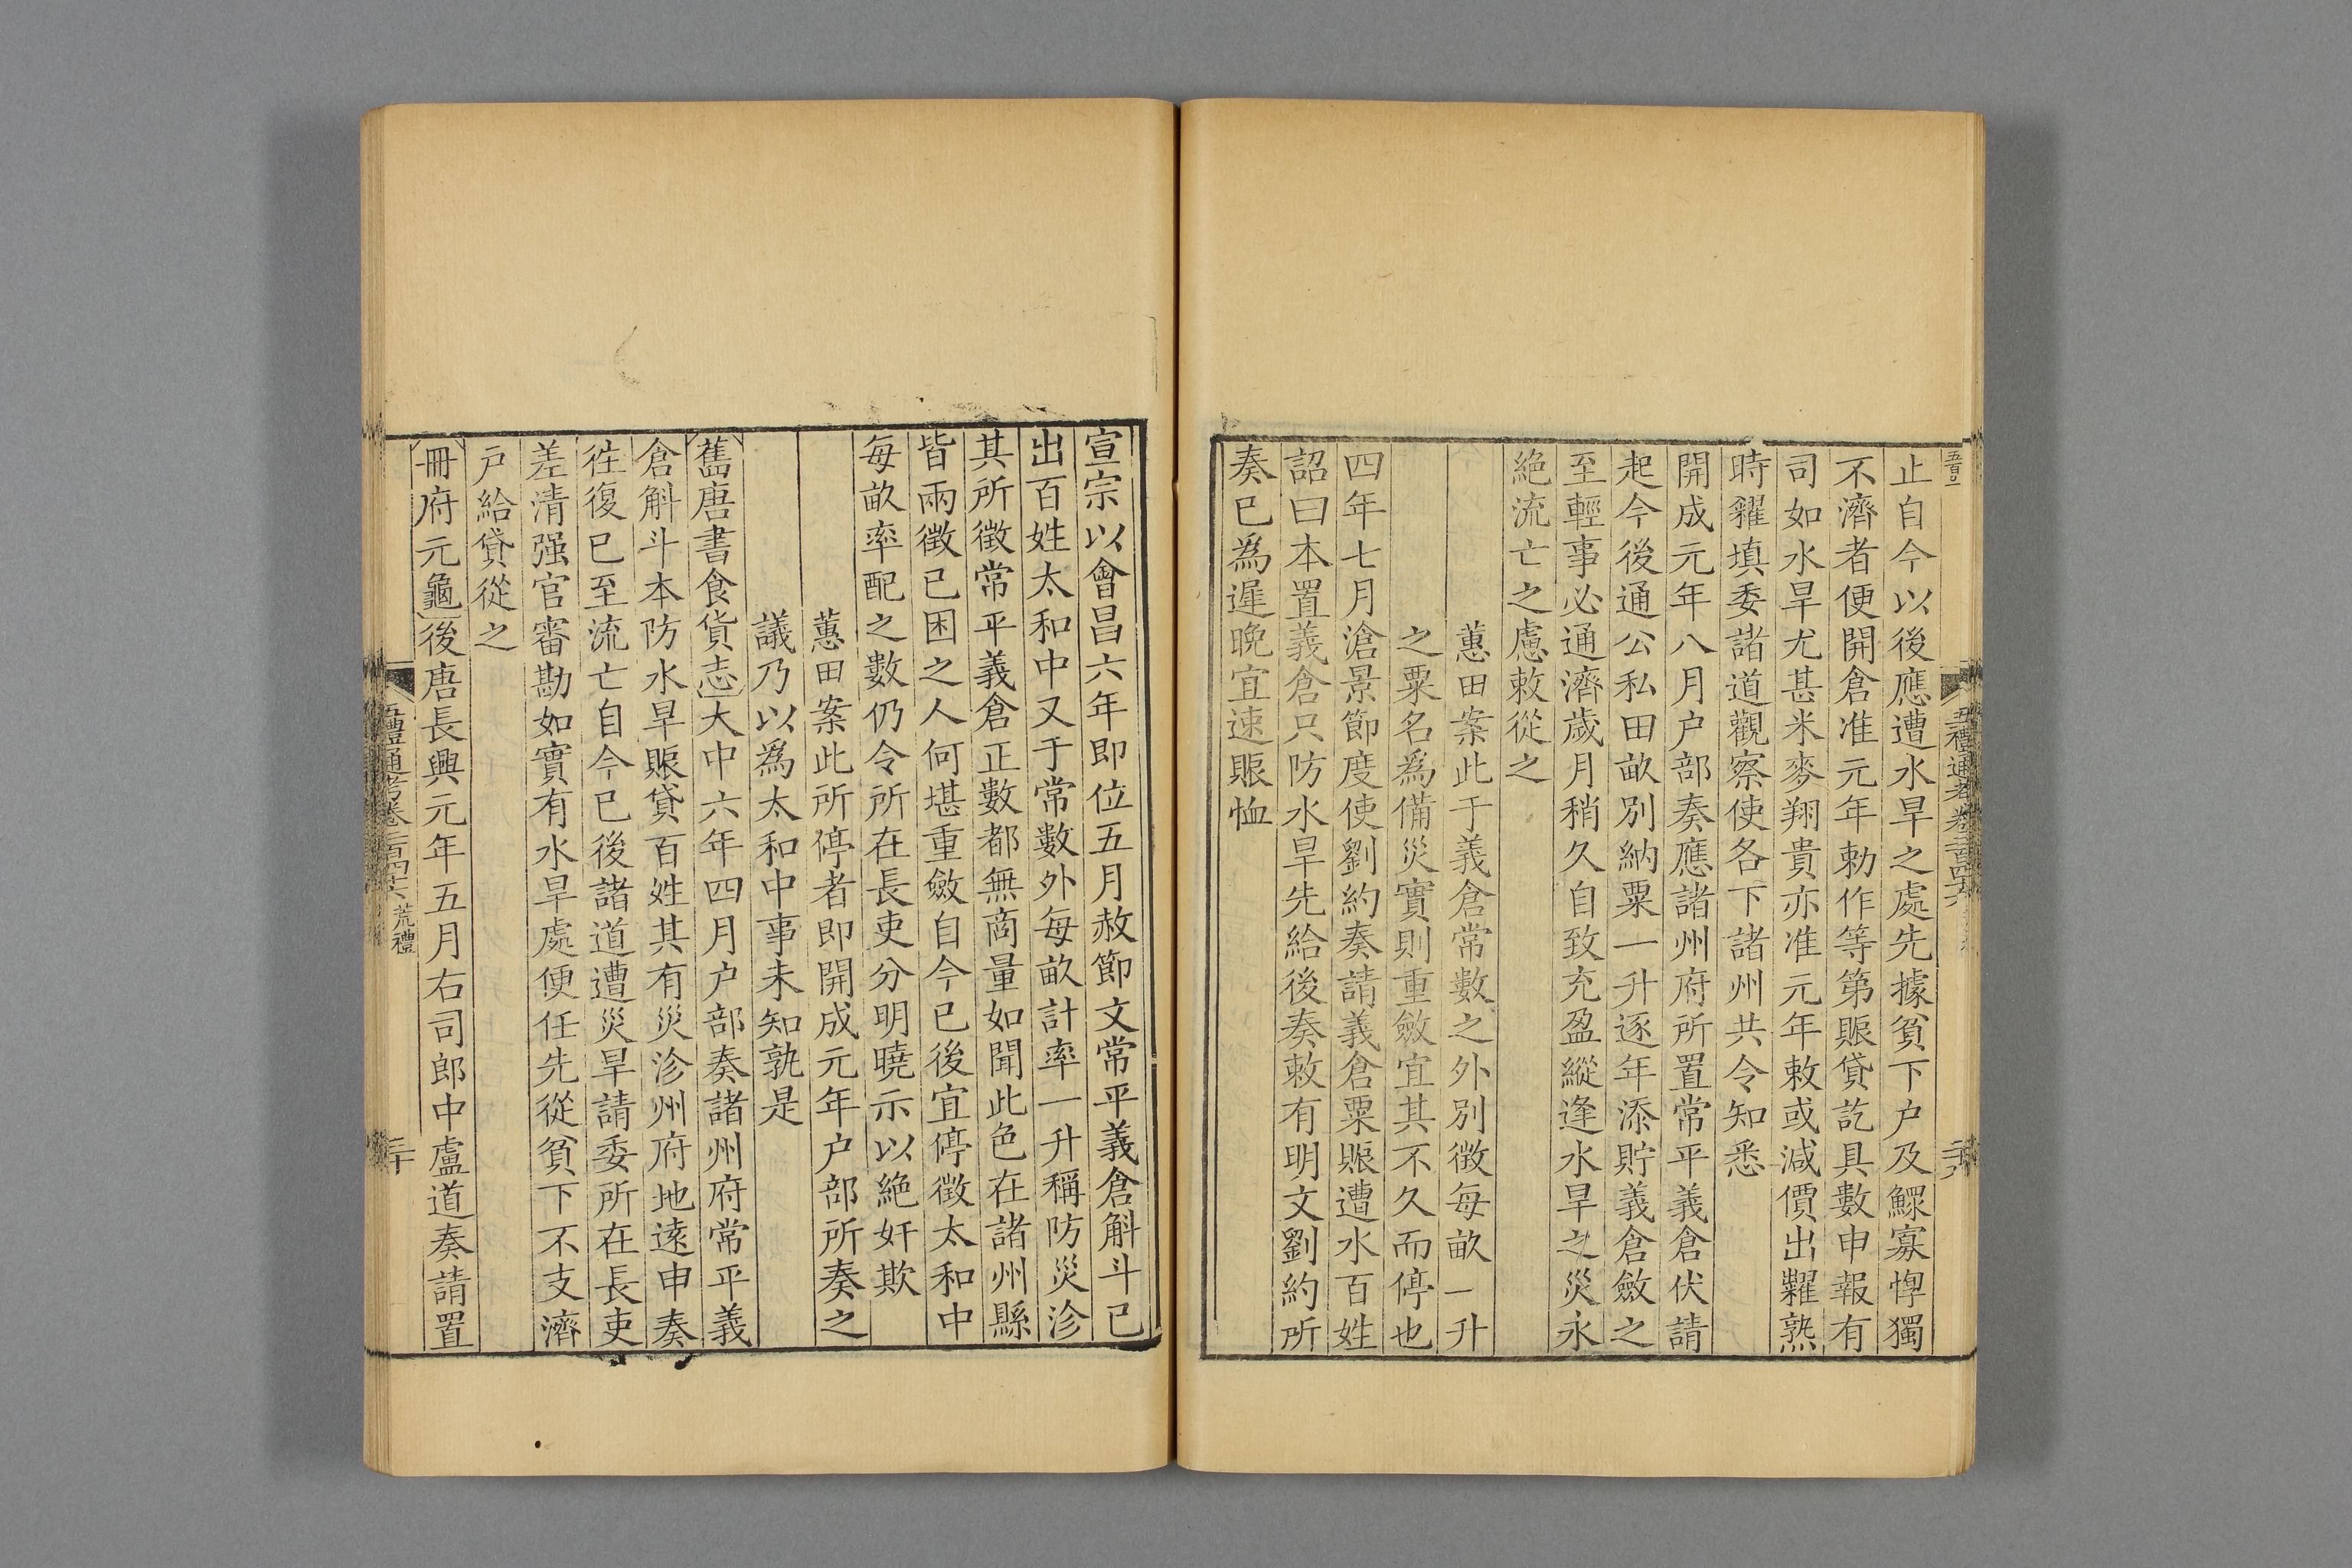 止自今以後應遭水旱之處先據貧下户及鰥寡惸獨
不濟者便開倉准元年勅作等第賑貸訖具數申報有
司如水旱尤甚米麥翔貴亦准元年敕或減價出糶熟
時糴填委諸道觀察使各下諸州共令知悉
開成元年八月户部奏應諸州府所置常平義倉伏請
起今後通公私田畝別納粟一升逐年添貯義倉斂之
至輕事必通濟歲月稍久自致充盈縱逢水旱之災永
絕流亡之慮敕從之
蕙田案此于義倉常數之外別徵每畝一升
之粟名為備災實則重斂宜其不久而停也
四年七月滄景節度使劉約奏請義倉粟賑遭水百姓
詔曰本置義倉只防水旱先給後奏敕有明文劉約所
奏已為遲晚宜速賑恤
宣宗以會昌六年即位五月赦節文常平義倉斛斗已
出百姓太和中又于常數外每畝計率一升稱防災沴
其所徵常平義倉正數都無商量如聞此色在諸州縣
皆兩徵已困之人何堪重斂自今已後宜停徵太和中
每畝率配之數仍令所在長吏分明曉示以絕奸欺
蕙田案此所停者即開成元年户部所奏之
議乃以為太和中事未知孰是
舊唐書食貨志大中六年四月户部奏諸州府常平義
倉斛斗本防水旱賑貸百姓其有災沴州府地遠申奏
往復已至流亡自今已後諸道遭災旱請委所在長吏
差清强官審勘如實有水旱處便任先從貧下不支濟
户給貸從之
冊府元龜後唐長興元年五月右司郎中盧道奏請置
五禮通考卷二百四十六 荒禮
三十